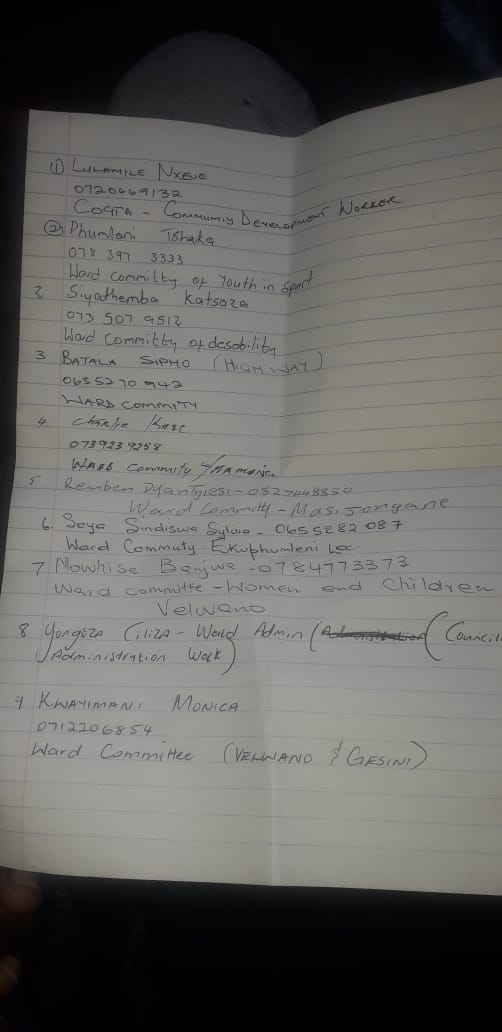 ① LULAMILE NXEVE
0720669132
COGTA - COMMUNITY DEVELOPMENT WORKER
② Phumlani Tshaka
078 397 3333
Ward Committy of Youth in Sport
2 Siyathemba Katsaza
073 507 9512
Ward Committy of desability
3 BATALA SIPHO (HIGHWAY)
0635270942
WARD COMMITY
4 Charlie
0739239258
WARD Commuity
5 Reuben Dyantyiesi - 0827448850
Ward Committy - Masizongane
6. Soya Sindiswa Sylvia - 0655282087
Ward Commuty Ekuphumleni Loc.
7 Nowhise Banjwa - 0784773373
Ward committe - Women and Children
Velwano
8 Yongeza CilizA - Ward Admin (Council
Administration Work)
9 KWAYIMANI MONICA
0712206854
Ward Committee (VELWANO & GESINI)